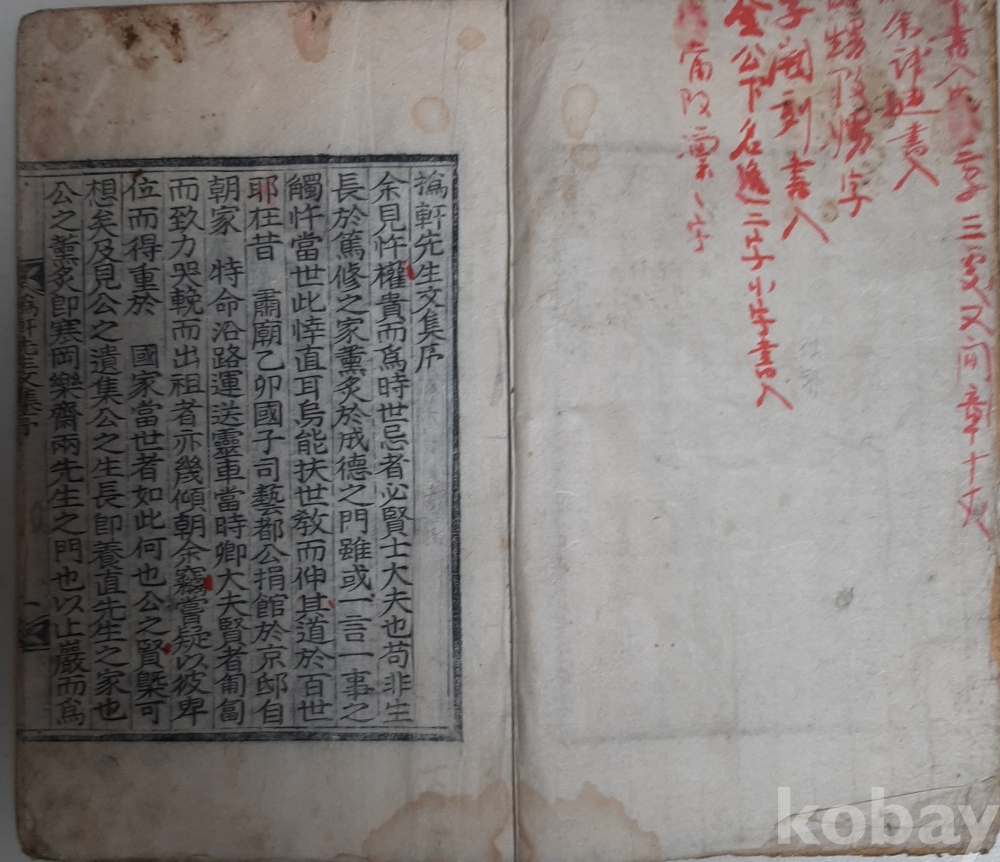 書入
三字三叉又間章十
書入
改惕字
字闕刻書入
金公下名進二字小字書入
改票
字
撝軒先生文集序
余見忤權貴而爲時世忌者必賢士大夫也苟非生
長於篤修之家薰炙於成德之門雖或一言一事之
觸忤當世此悻直耳烏能扶世敎而伸其道於百世
耶在昔 肅廟乙卯國子司藝都公捐館於京邸自
朝家 特命沿路運送靈車當時卿大夫賢者匍匐
而致力哭輓而出租者亦幾傾朝余竊嘗疑以彼卑
位而得重於 國家當世者如此何也公之賢槩可
想矣及見公之遺集公之生長卽養直先生之家也
公之薰炙卽寒岡樂齋兩先生之門也以上嚴而爲
軒先生文集序
一
kobay